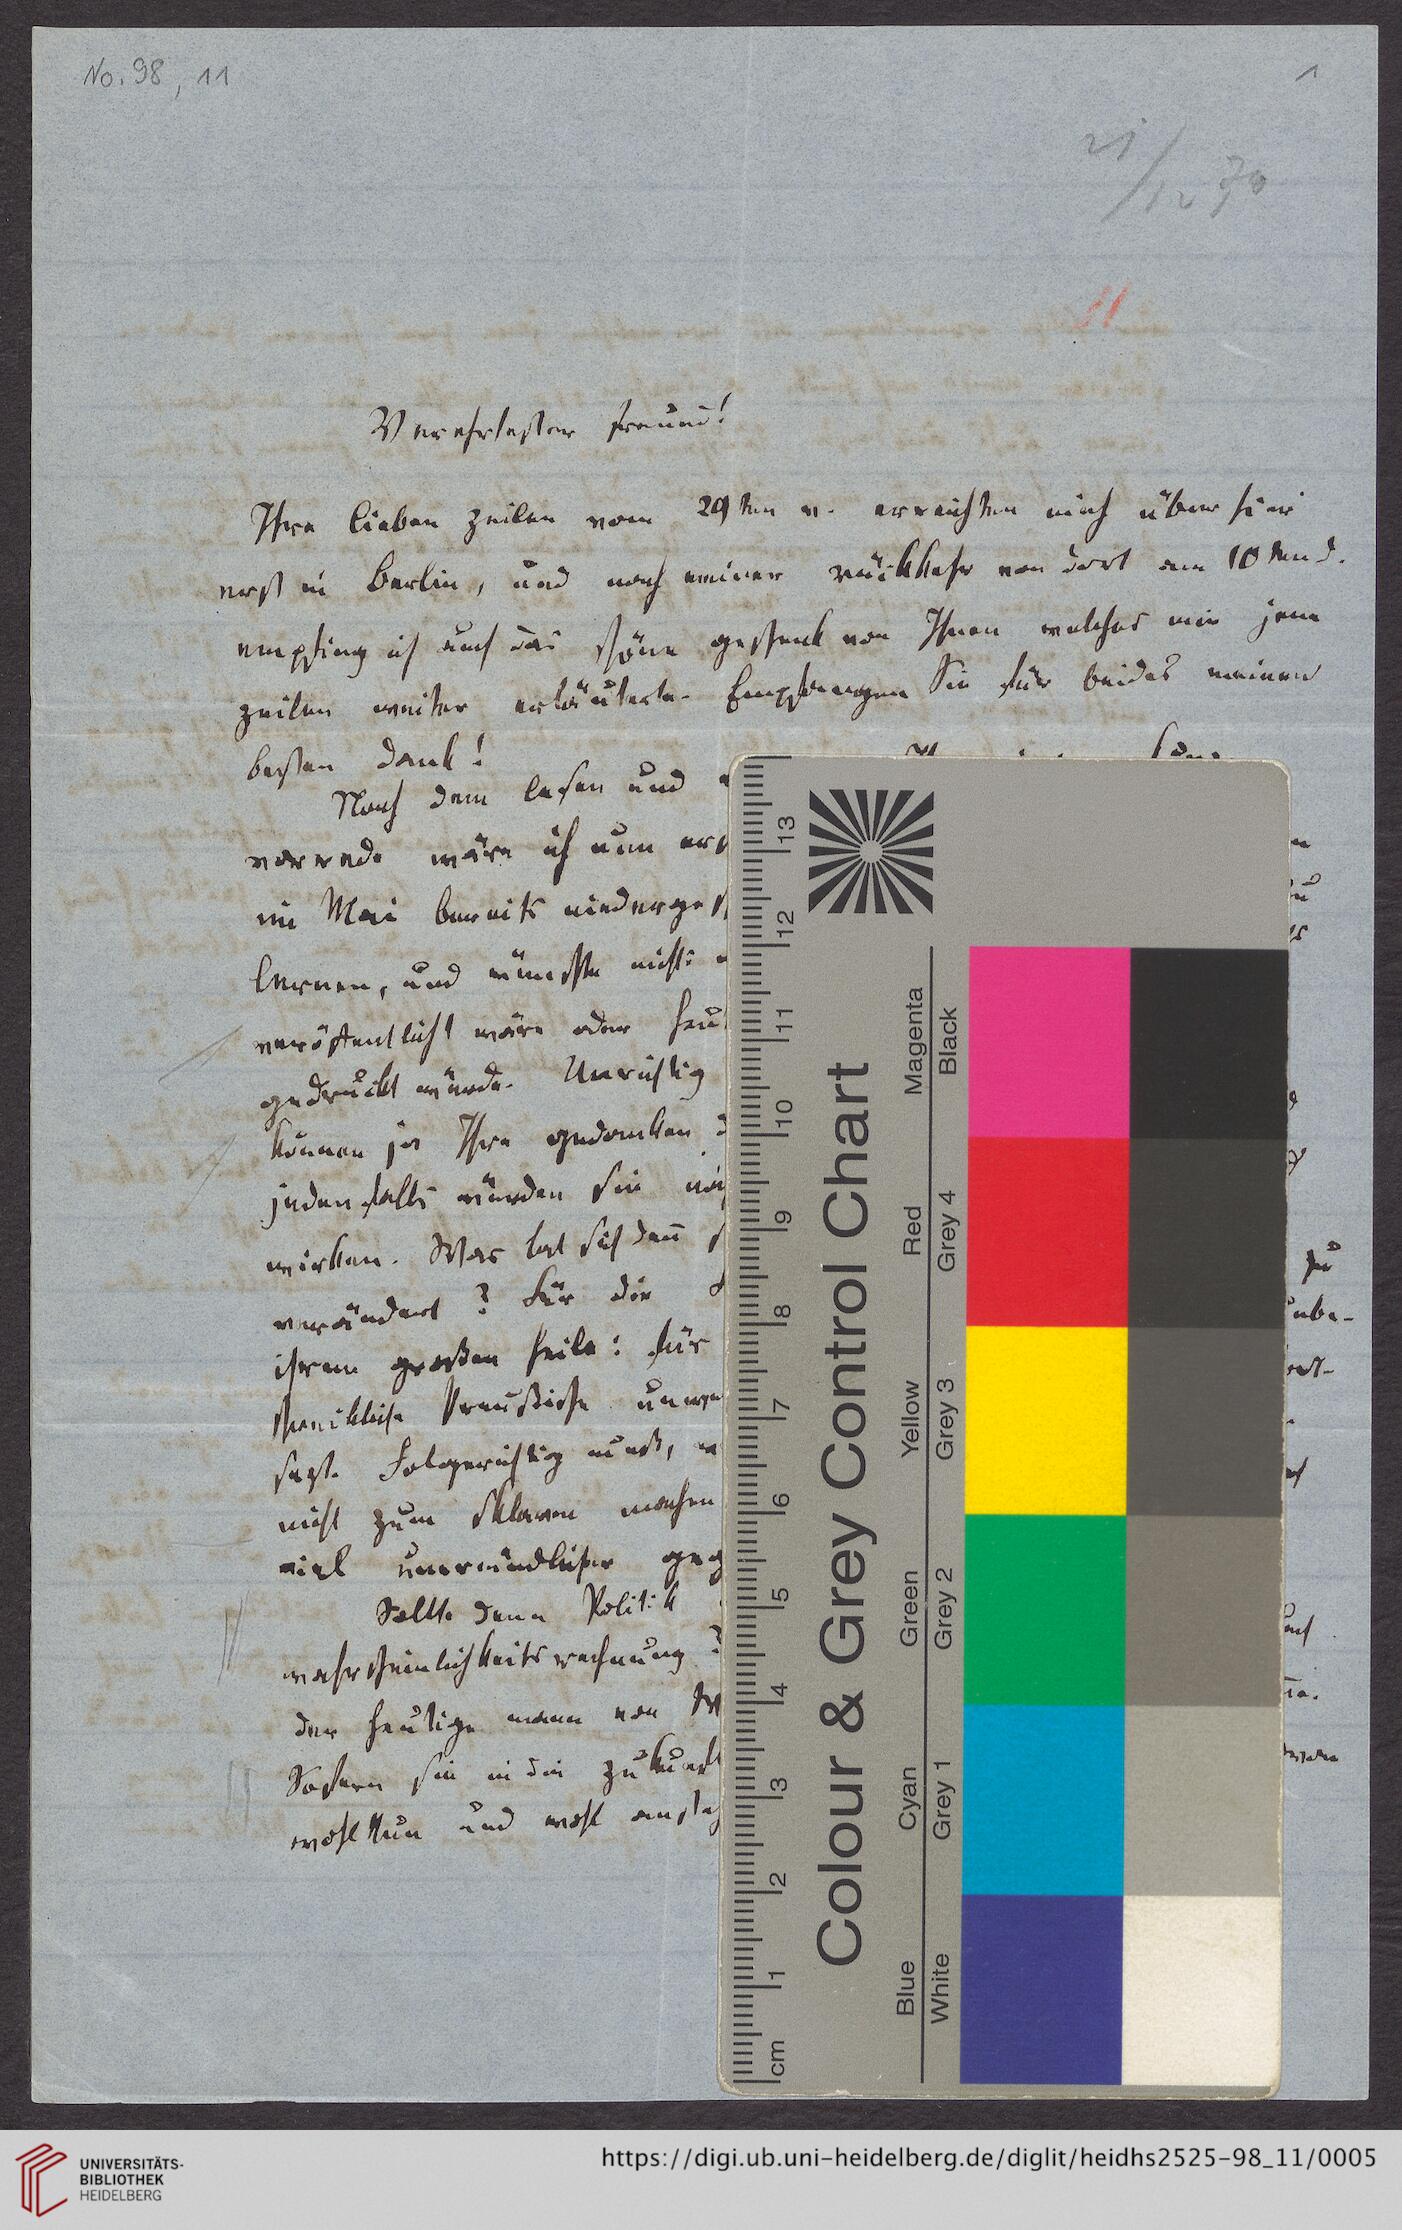 No. 98, 11
1
21/12 70
11
Verehrtester freund!
Ihre lieben zeilen vom 29ten v. erreichten mich über hier
erst in Berlin, und nach meiner rückkehr von dort am 10ten d.
empfing ich auch das schöne geschenk von Ihnen welches mir jene
zeilen weiter erläuterte. Empfangen Sie für beides meinen
besten dank!
Nach dem lesen und
vorrede wäre ich nun
im Mai bereits niederge
lernen, und wünschte nicht
veröffentlicht wäre oder heu
gedruckt würde. Unrichtig
können ja Ihre gedanken
jedenfalls würden sie
wirken. Was hat sich denn
verändert? Für die
ihrem großen heile: für
schreckliche Preußische unwe
sagt. Folgerichtig muß,
nicht zum sklaven machen
viel unermüdlicher geg
Sollte denn Politik
wahrscheinlichkeitsrechnung?
der heutige mann von
Sofern sie in die zukunft
wohl thun und wohl
zu
Colour & Grey Control Chart
Magenta
Black
Red
Grey 4
Yellow
Grey 3
Green
Grey 2
Cyan
Grey 1
Blue
White
13
12
11
10
9
8
7
6
5
4
3
2
1
cm
UNIVERSITÄTS-
BIBLIOTHEK
HEIDELBERG
https://digi.ub.uni-heidelberg.de/diglit/heidhs2525-98_11/0005